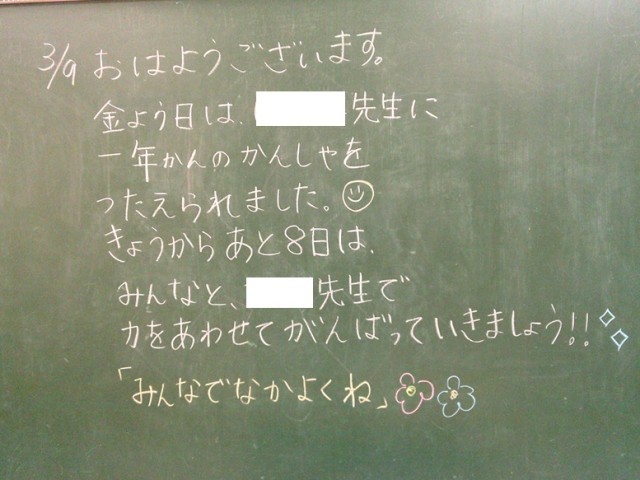 3/9 おはようございます。
金よう日は、先生に
一年かんのかんしゃを
つたえられました。
きょうからあと8日は、
みんなと、先生で
力をあわせてがんばっていきましょう!!
「みんなでなかよくね」